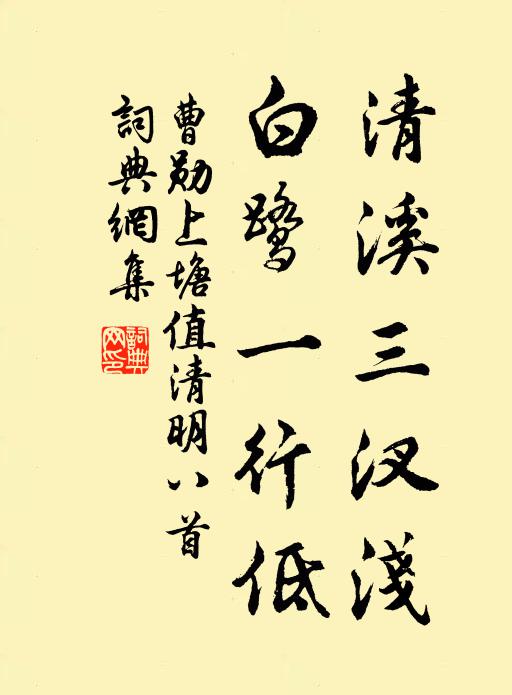 清溪三汊淺
白鷺一行低
曹勛上塘值清明八首
詞典網集
詞典網印